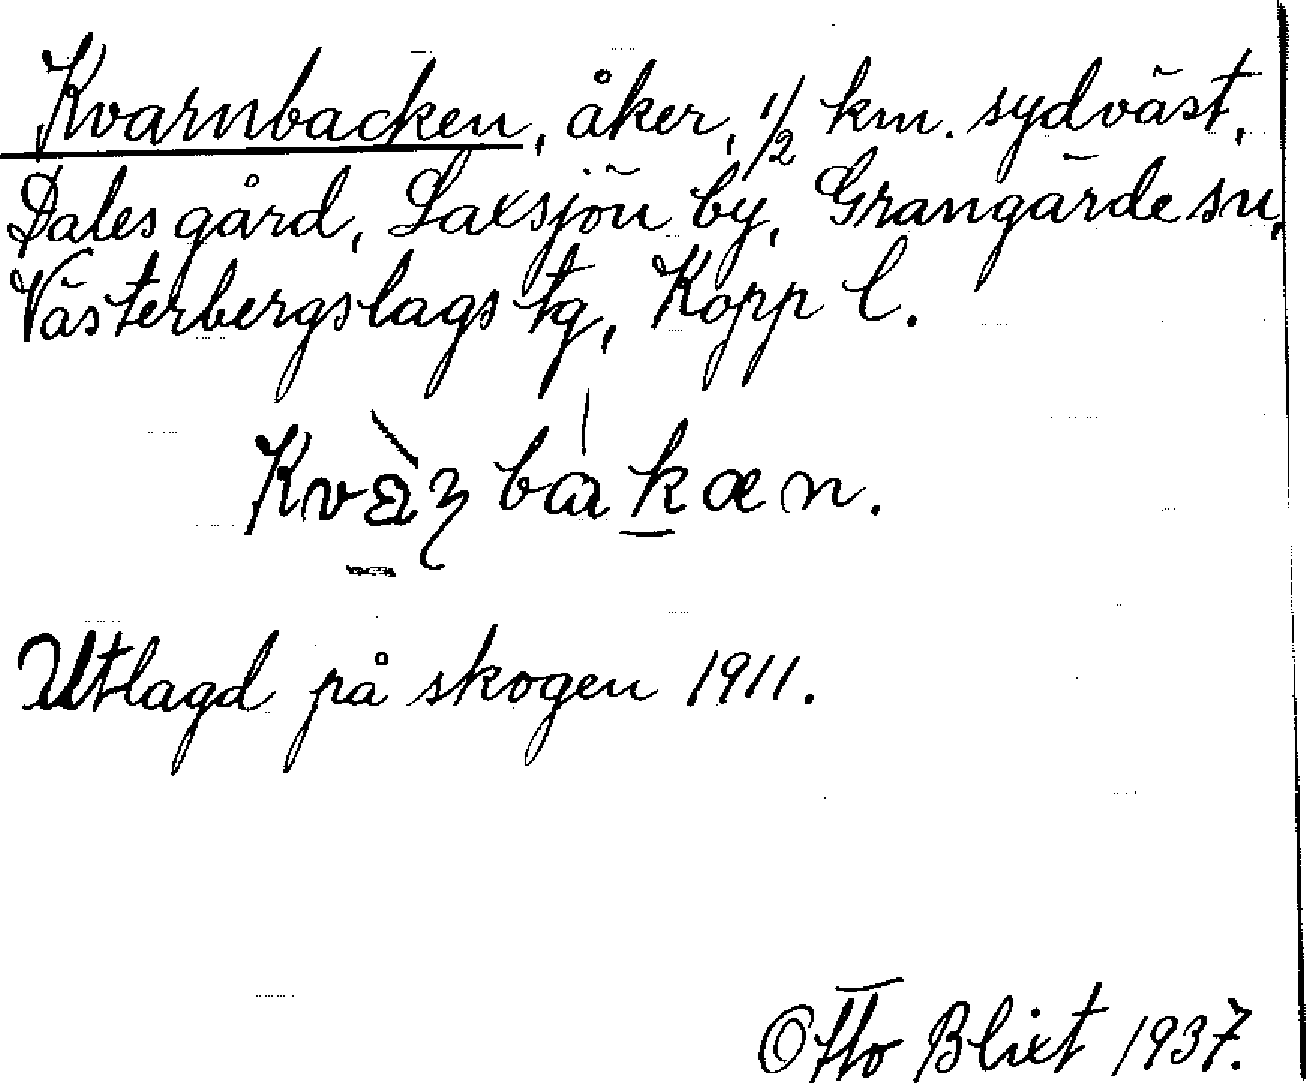 Kvarnbacken, åker, 1/2 km. sydväst,
Dales gård, Laxsjön by, Grangärde sn,
Västerbergslags tg, Kopp l.
Utlagd på skogen 1911.
Otto Blixt 1937.